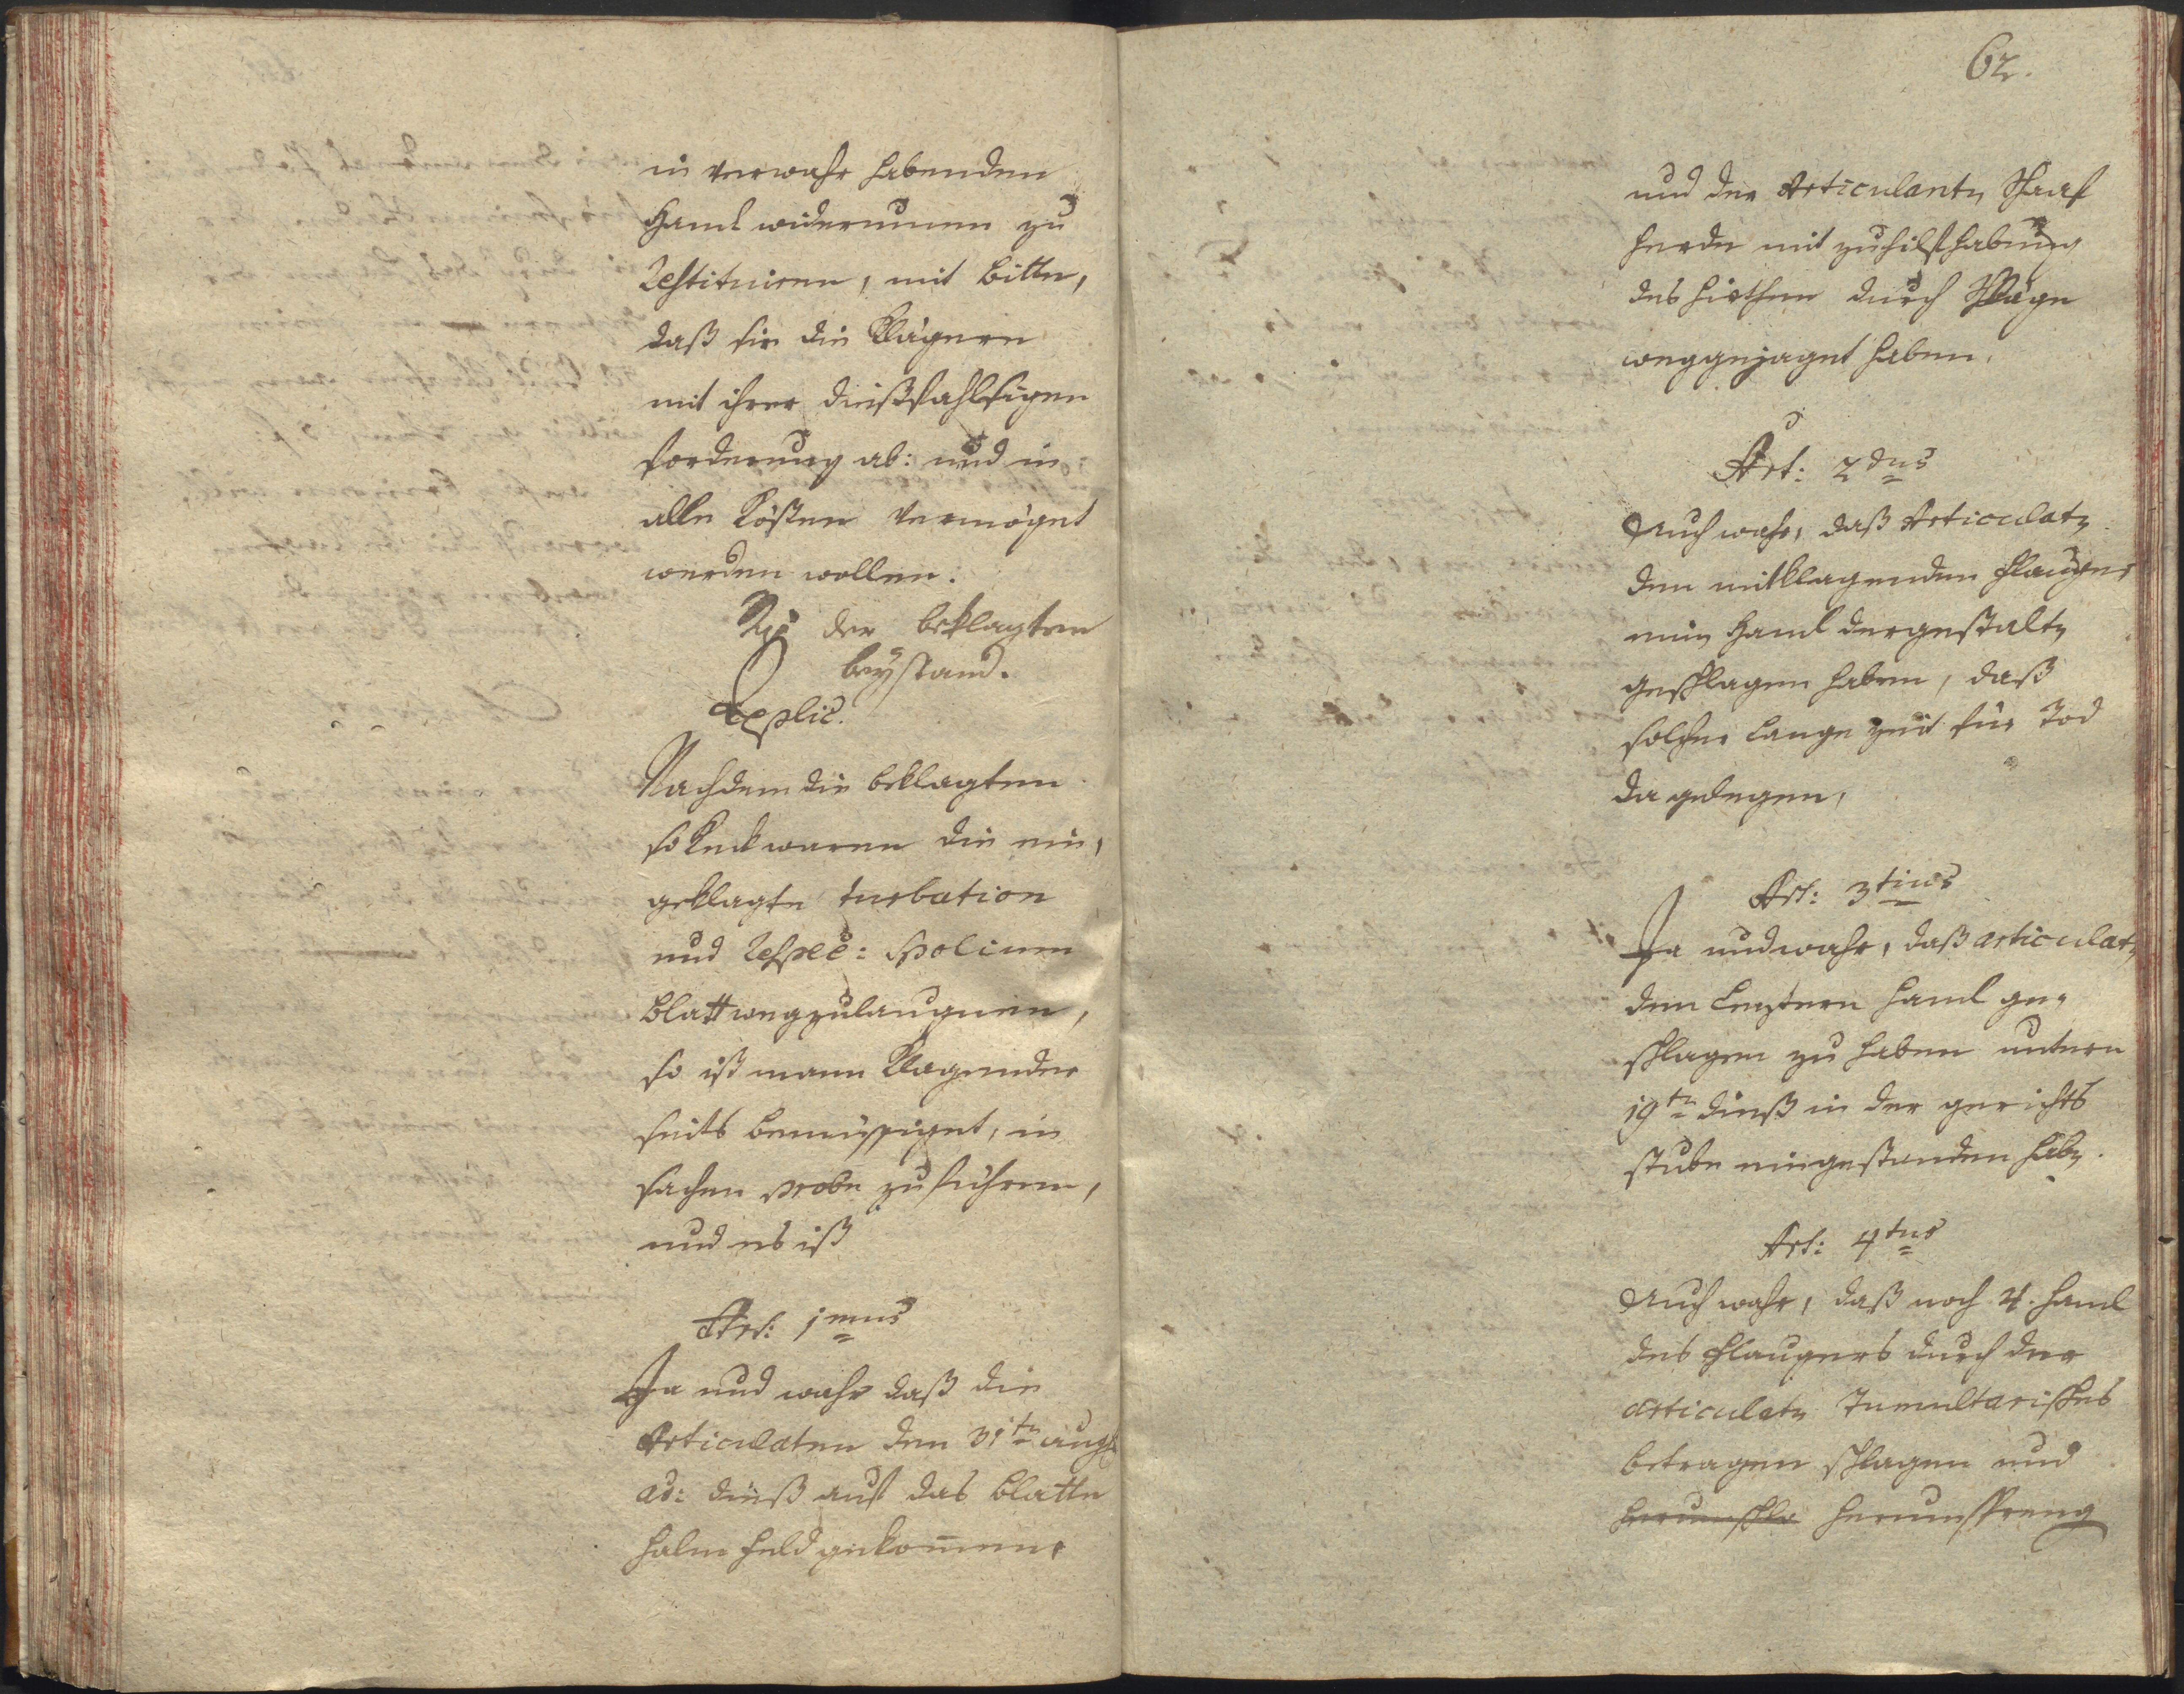 in verwahr habenden
Haml widerumen zu
Restituiren, mit bitte,
daß sie die Klägere
mit ihrer dießfahlsigen
forderung ab: und in
alle kösten vermöget
werden wollen.
der beklagten
beystand.
Replic.
Nachdem die beklagten
so keck waren die ein,
geklagte turbation
und Respec: Spolium
blatt wegzulaugnen,
so ist mann klagender
seits bemüssiget, in
sachen probe zu führen,
und es ist
Art: 1mus
Ja und wahr daß die
Articulaten den 31tn aug
ad: dieß auf das blatte
halm feld gekommen,
62.
und der Articulantn Schaaf
herde mit zuhilfhabung
des hirthen durch Schläge
weggejaget haben.
Art: 2dus
Auch wahr, daß Articulatn
dem mitklagenden Plaugger
ein Haml dergestaltn
geschlagen haben, daß
solcher lange zeit für Tod
da gelegen,
Art: 3tius
Ja und wahr, daß articulatn
dem leztern haml ge,
schlagen zu haben untern
19tn dieß in der gerichts
stube eingestanden habn.
Art: 4tus
Auch wahr, daß noch 4. haml
des Plauggers durch der
articulatn Tumultarisches
betragen schlagen und
herumschla herumspreng